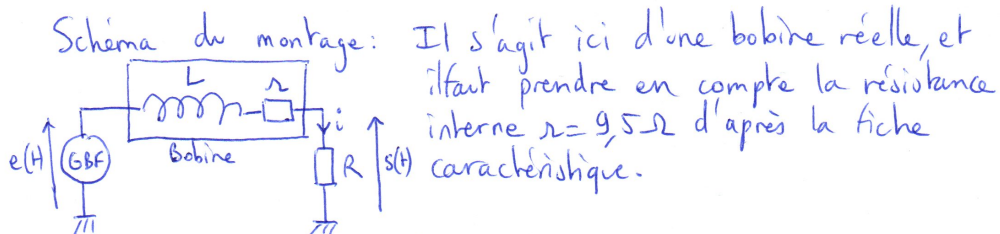 Schéma du montage : Il s'agit ici d'une bobine réelle, et
il faut prendre en compte la résistance
interne r = 9,5 Ω d'après la fiche
caractéristique.
L r
i
Bobine
e(t) GBF R s(t)